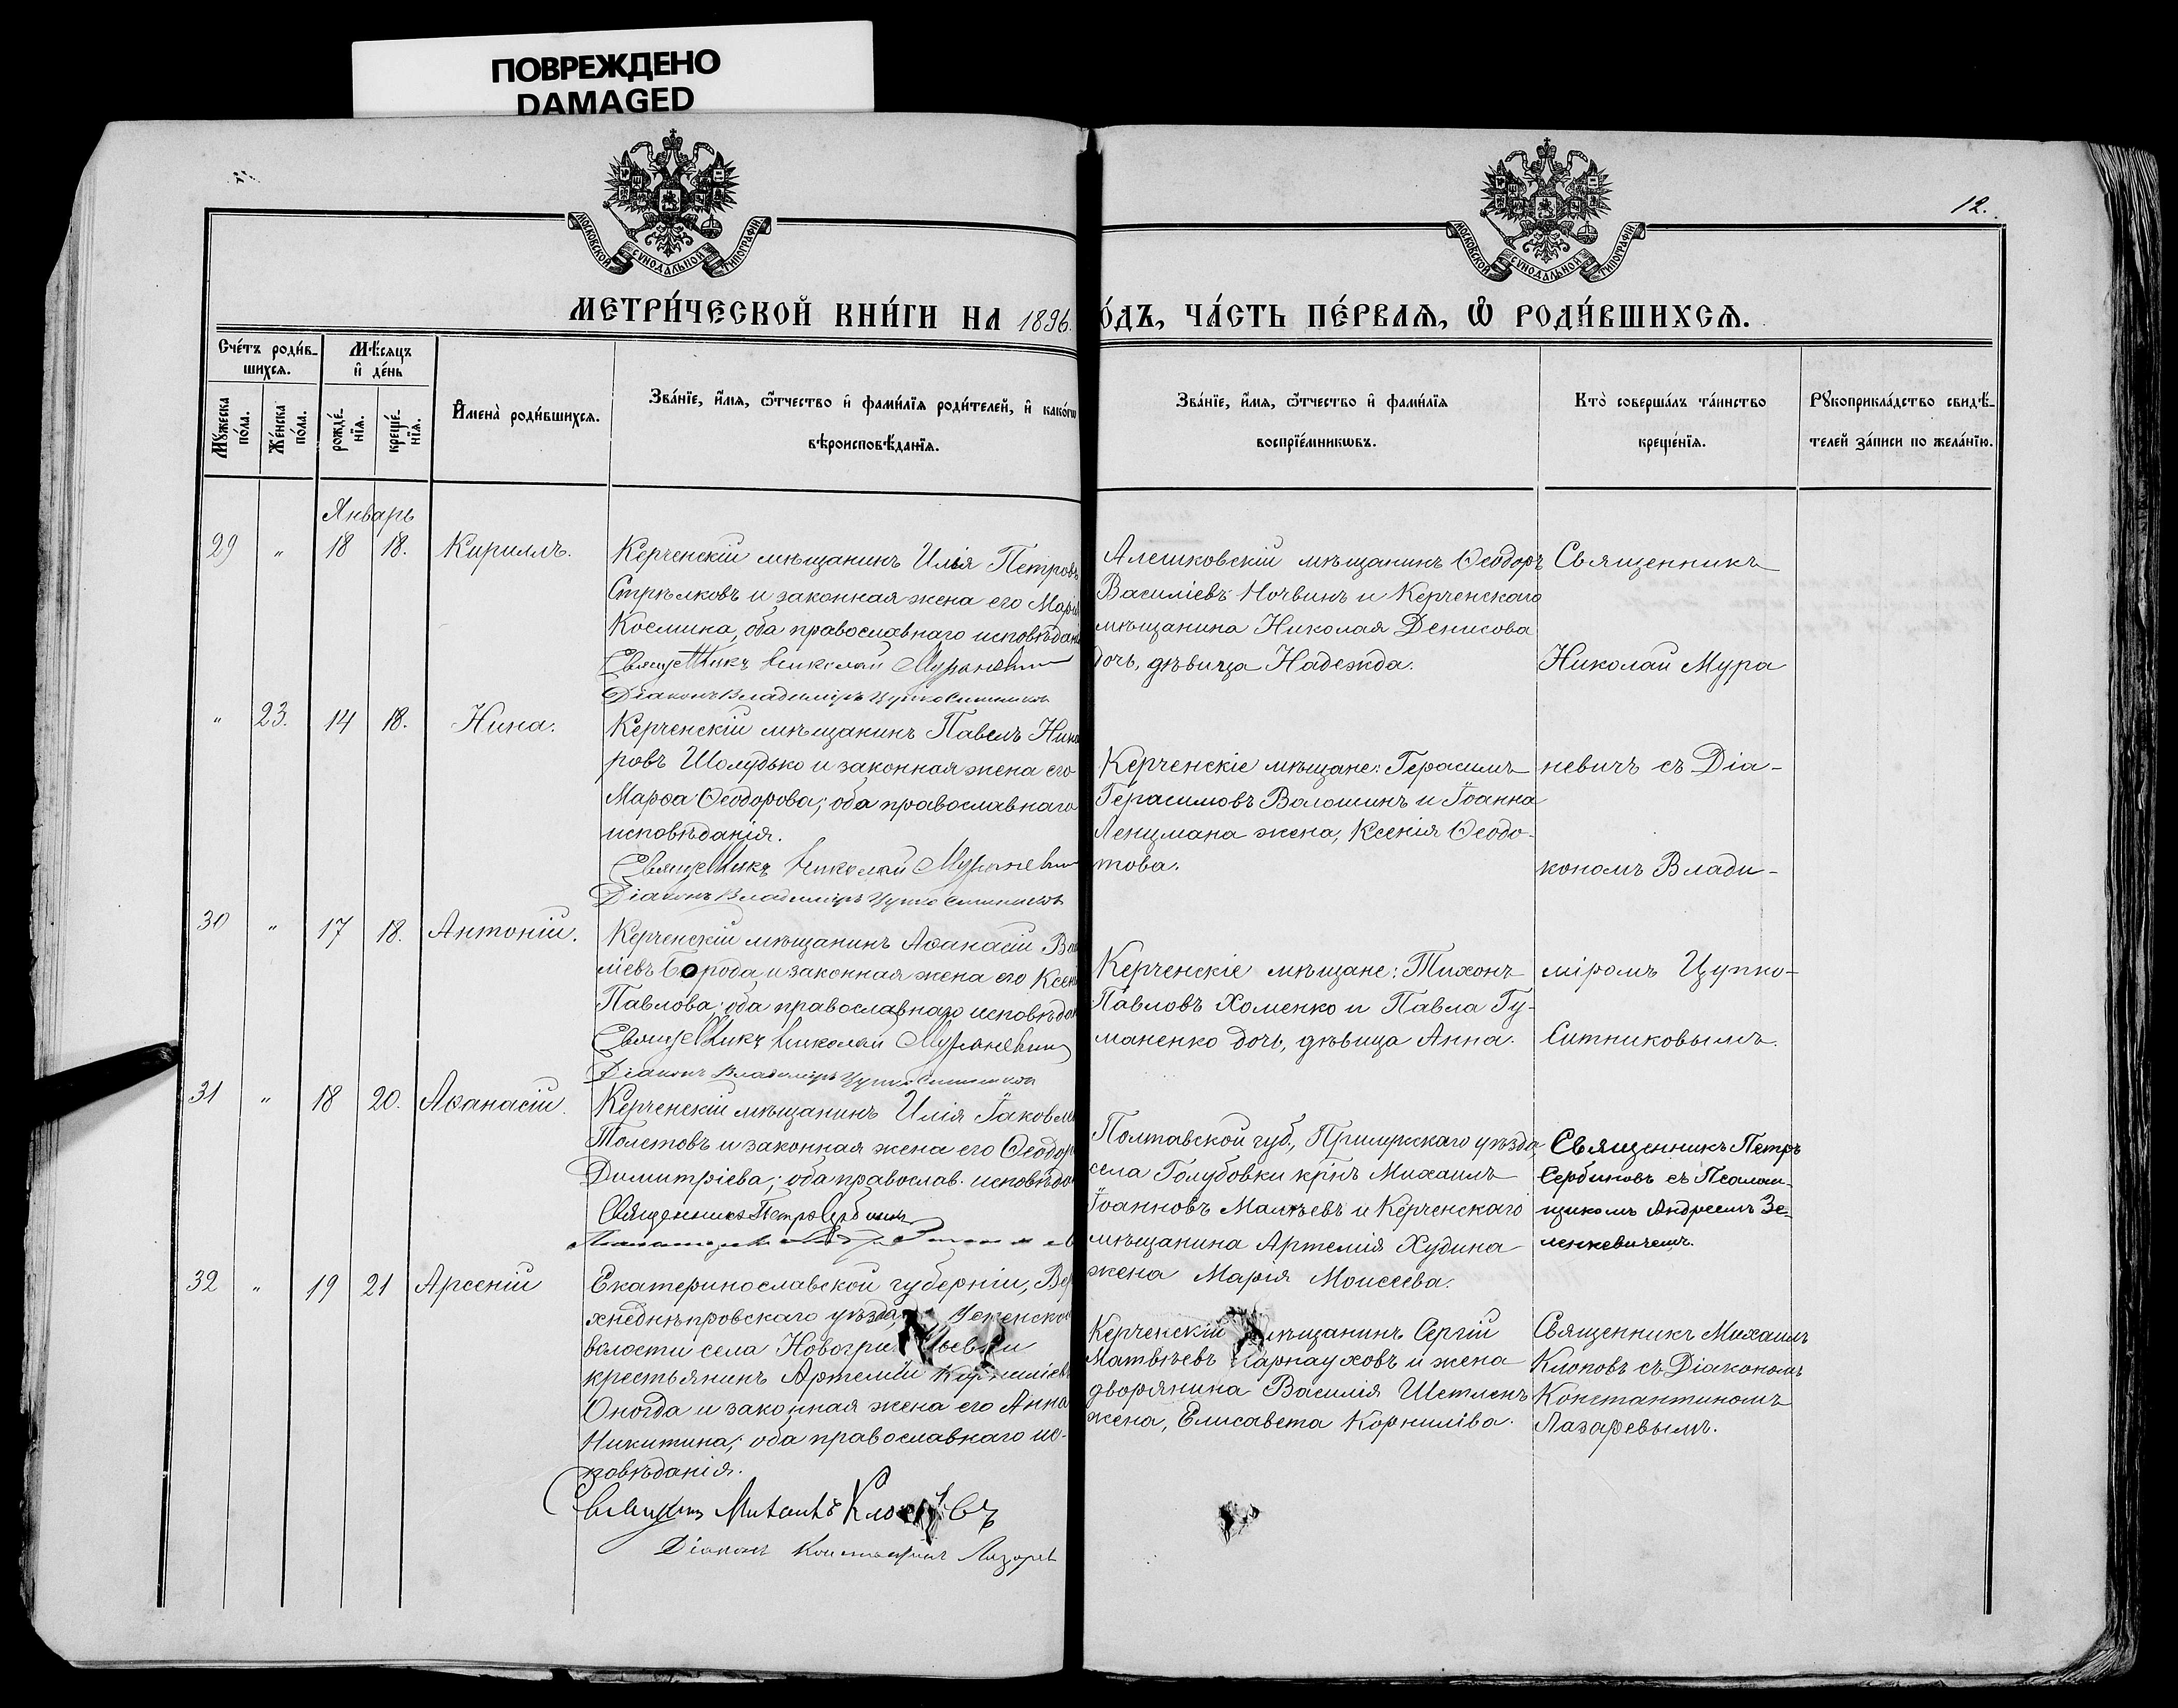 ПОВРЕЖДЕНО
DAMAGED
МОСКОВСКОЙ СѴНОДАЛЬНОЙ ТИПОГРАФІИ
МОСКОВСКОЙ СѴНОДАЛЬНОЙ ТИПОГРАФІИ
12.
МЕТРИ́ЧЕСКОЙ КНИ́ГИ НА 1896.
О́ДЪ, ЧА́СТЬ ПЕ́РВАѦ, Ѡ РОДИ́ВШИХСѦ.
Сче́тъ роди́в-
шихсѧ.
Мꙋ́жеска по́ла.
Же́нска по́ла.
Мѣ́сѧцъ
и҆ де́нь
рожде́-
нїѧ.
креще́-
нїѧ.
И҆мена̀ роди́вшихсѧ.
Зва́нїе, и҆́мѧ, ѻ҆́тчество и҆ фами́лїѧ роди́телей, и҆ како́гѡ
вѣроисповѣ́данїѧ.
Зва́нїе, и҆́мѧ, ѻ҆́тчество и҆ фами́лїѧ
воспрїе́мникѡвъ.
Кто̀ соверша́лъ та́инство
креще́нїѧ.
Рꙋкоприкла́дство свидѣ́-
телей за́писи по жела́нїю.
Январь
29 " 18 18. Кириллъ.
Керченскій мѣщанинъ Илья Петровъ
Стрѣлковъ и законная жена его Марія
Космина, оба православнаго исповѣдані
Священникъ Николай Мураневич
Діаконъ Владиміръ Цупко Ситников
Алешковскій мѣщанинъ Ѳеодоръ
Василіевъ Ночвинъ и Керченскаго
мѣщанина Николая Денисова
дочь, дѣвица Надежда.
" 23. 14 18. Нина.
Керченскій мѣщанинъ Павелъ Ника
ровъ Шолудько и законная жена его
Марѳа Ѳеодорова; оба православнаго
исповѣданія.
Священникъ Николай Мураневич
Діаконъ Владиміръ Цупко Ситников
Керченскіе мѣщане: Герасимъ
Герасимовъ Волошинъ и Іоанна
Ленцмана жена, Ксенія Ѳеодо-
това.
30 " 17 18. Антоній.
Керченскій мѣщанинъ Аѳанасій Васи
ліевъ Борода и законная жена его Ксені
Павлова; оба православнаго исповѣдан
Священникъ Николай Мураневич
Діаконъ Владиміръ Цупко Ситников
Керченскіе мѣщане: Тихонъ
Павловъ Хоменко и Павла Гу-
маненко дочь, дѣвица Анна.
Священникъ
Николай Мура
невичъ съ Діа-
кономъ Влади-
міромъ Цупко-
Ситниковымъ.
31 " 18 20. Аѳанасій.
Керченскій мѣщанинъ Илія Іаковле
Толстовъ и законная жена его Ѳеодор
Димитріева; оба православ. исповѣда
Священникъ Петръ Сербиновъ
Полтавской губ., Прилукскаго уѣзда
села Голубовки кр҃нъ Михаилъ
Іоанновъ Малѣевъ и Керченскаго
мѣщанина Артемія Худина
жена Марія Моисеева.
Священникъ Петръ
Сербиновъ съ Псалом-
щикомъ Андреемъ Зе-
ленкевичемъ.
32 " 19 21 Арсеній
Екатеринославской губерніи, Вер
хнеднѣпровскаго уѣзда, Успенской
волости села
крестьянинъ Артемій Корниліевъ
Оногда и законная жена его Анна
Никитина; оба православнаго ис-
повѣданія.
Михаилъ Клоповъ
Діаконъ Константинъ Лазарев
Керченскій мѣщанинъ Сергій
Матвѣевъ Карнауховъ и жена
дворянина Василія Шетленъ
жена, Елисавета Корниліва.
Священникъ Михаилъ
Клоповъ съ Діакономъ
Константиномъ
Лазаревымъ.